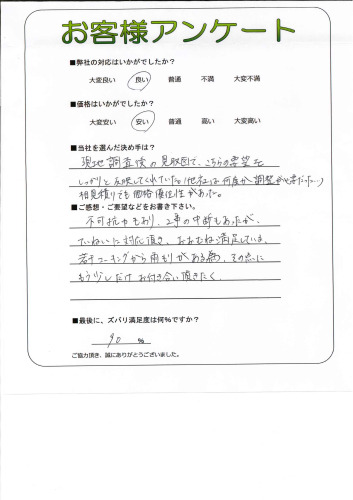 お客様アンケート
■弊社の対応はいかがでしたか?
大変良い 良い 普通 不満 大変不満
■価格はいかがでしたか?
大変安い 安い 普通 高い 大変高い
■当社を選んだ決め手は?
現地調査後の見取図で、こちらの要望を
しっかりと反映してくれていた。(他社は何度か調整が必要だった…)
相見積りでも価格優位性があった。
■ご感想・ご要望などをお書き下さい。
不可抗力もあり、工事の中断もあったが、
ていねいに対応頂き、おおむね満足しています。
若干コーキングから雨もりがある為、その点に
もう少しだけお付き合い頂きたく。
■最後に、ズバリ満足度は何%ですか?
90 %
ご協力頂き、誠にありがとうございました。